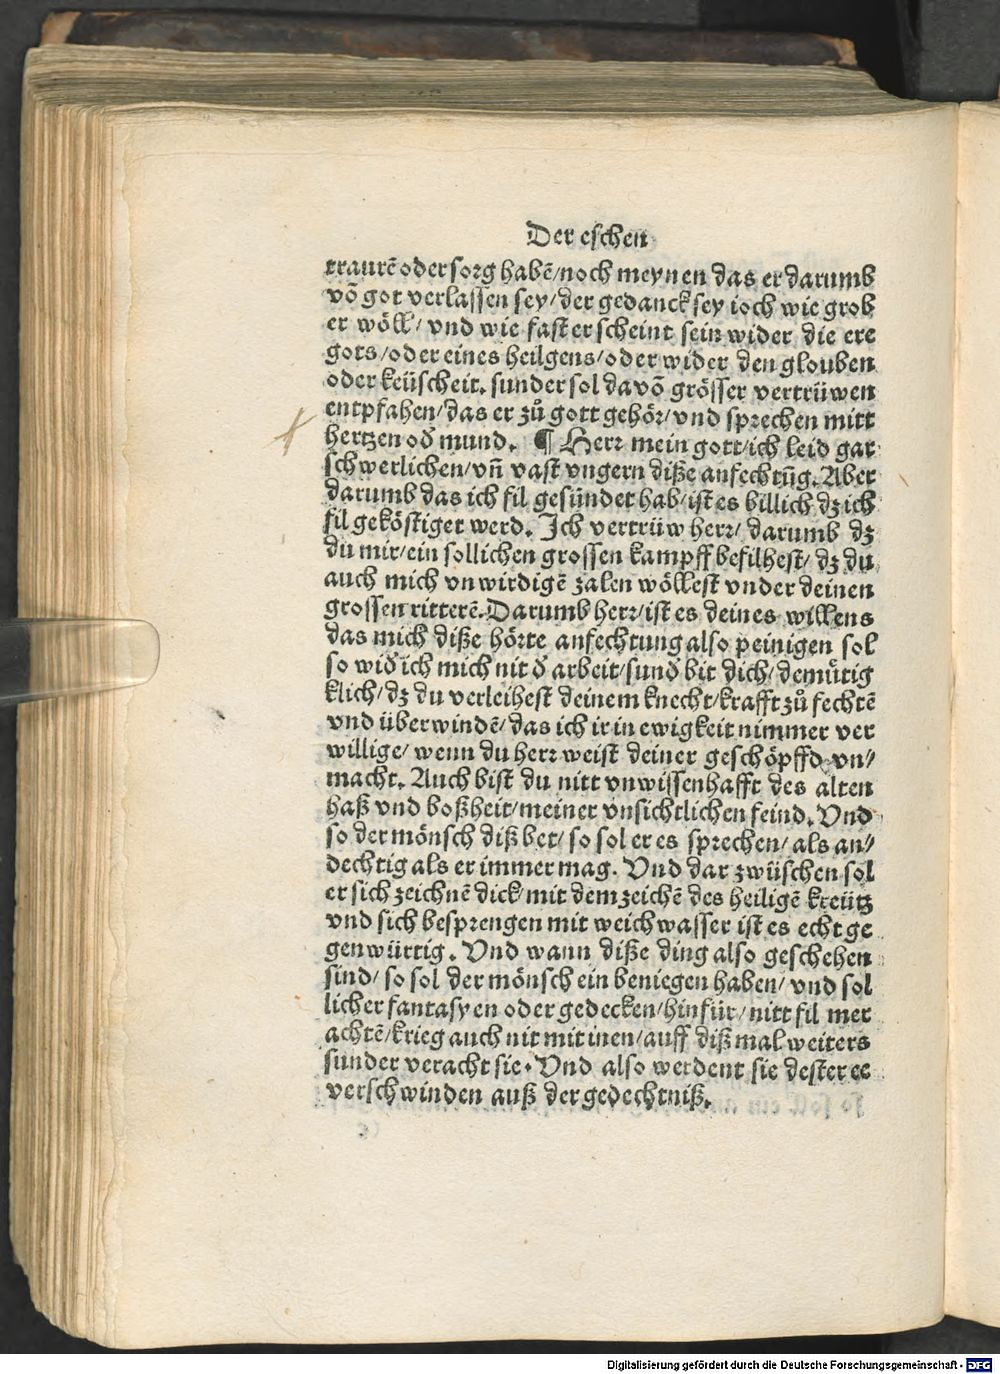 Der eschen
traurē oder sorg habē/noch meynen das er darumb
vō got verlassen sey/der gedanck sey ioch wie grob
er wöll/ vnd wie fast er scheint sein wider die ere
gots/oder eines heilgens/oder wider den glouben
oder keüscheit. sunder sol davō grösser vertrüwen
entpfahen/das er zů gott gehör/vnd sprechen mitt
hertzen oď mund. ¶ Herr mein gott/ich leid gar
schwerlichen/vn̄ vast vngern diße anfechtūg. Aber
darumb das ich fil gesündet hab/ist es billich dz ich
fil geköstiget werd. Ich vertrüw herr/ darumb dz
du mir/ein sollichen grossen kampff befilhest/ dz du
auch mich vnwirdigē zalen wöllest vnder deinen
grossen ritterē. Darumb herr/ist es deines willens
das mich diße hörte anfechtung also peinigen sol
so wiď ich mich nit ď arbeit/sunď bit dich/demůtig
klich/dz du verleihest deinem knecht/krafft zů fechtē
vnd überwindē/das ich ir in ewigkeit nimmer ver
willige/ wenn du herr weist deiner geschöpffd vn/
macht. Auch bist du nitt vnwissenhafft des alten
haß vnd boßheit/meiner vnsichtlichen feind. Vnd
so der mönsch diß bet/ so sol er es sprechen/ als an/
dechtig als er immer mag. Vnd dar zwüschen sol
er sich zeichnē dick/mit dem zeichē des heiligē kreütz
vnd sich besprengen mit weichwasser ist es echt ge
genwürtig. Vnd wann diße ding also geschehen
sind/ so sol der mönsch ein beniegen haben/ vnd sol
licher fantasyen oder gedecken/hinfür/nitt fil mer
achtē/krieg auch nit mit inen/auff diß mal weiters
sunder veracht sie. Vnd also werdent sie dester ee
verschwinden auß der gedechtniß.
Digitalisierung gefördert durch die Deutsche Forschungsgemeinschaft - DFG